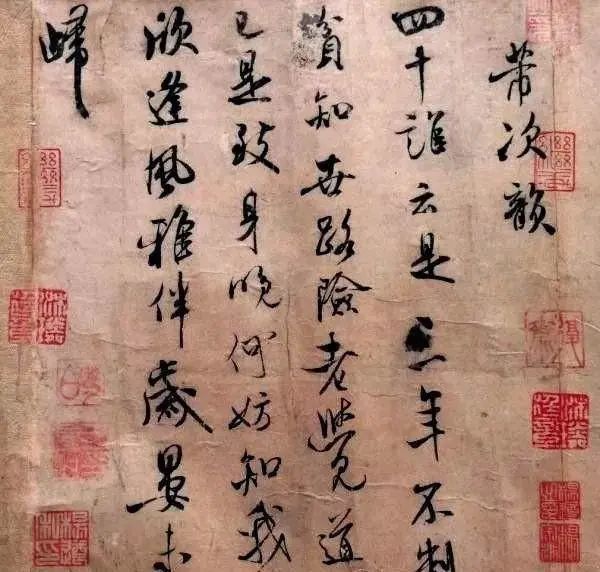 芾次韻
四十誰云是三年不制
貧知世路險老覺道
已是致身晚何妨知我
欣逢風雅伴歲晏未
歸